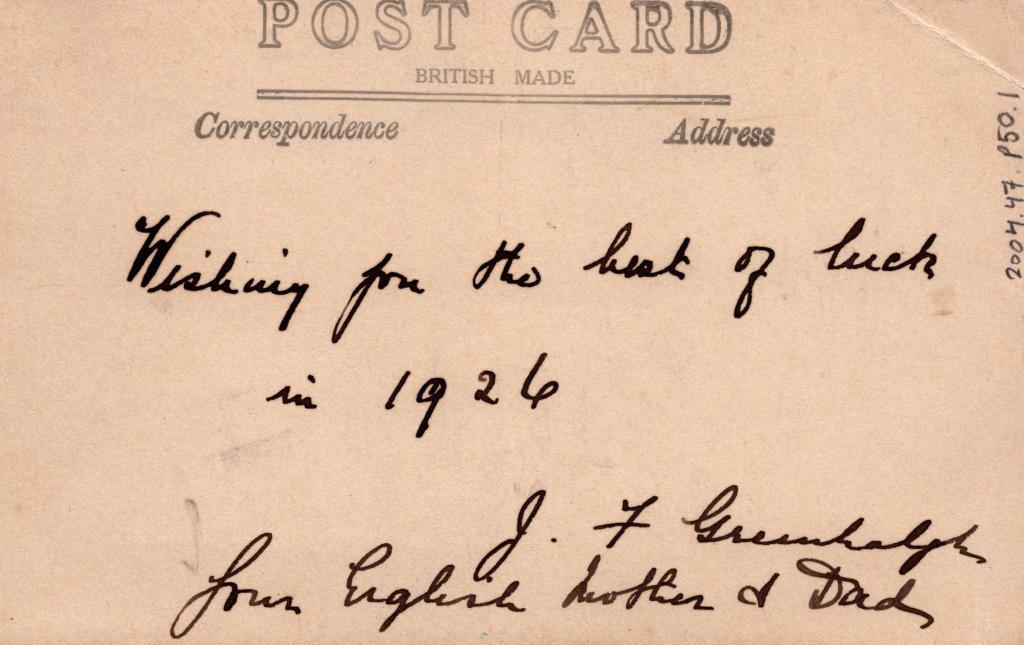 POST CARD
BRITISH MADE
Correspondence Address
Wishing you the best of luck
in 1926
J. F Greenhalgh
your English Mother & Dad
2004.47.P50.1